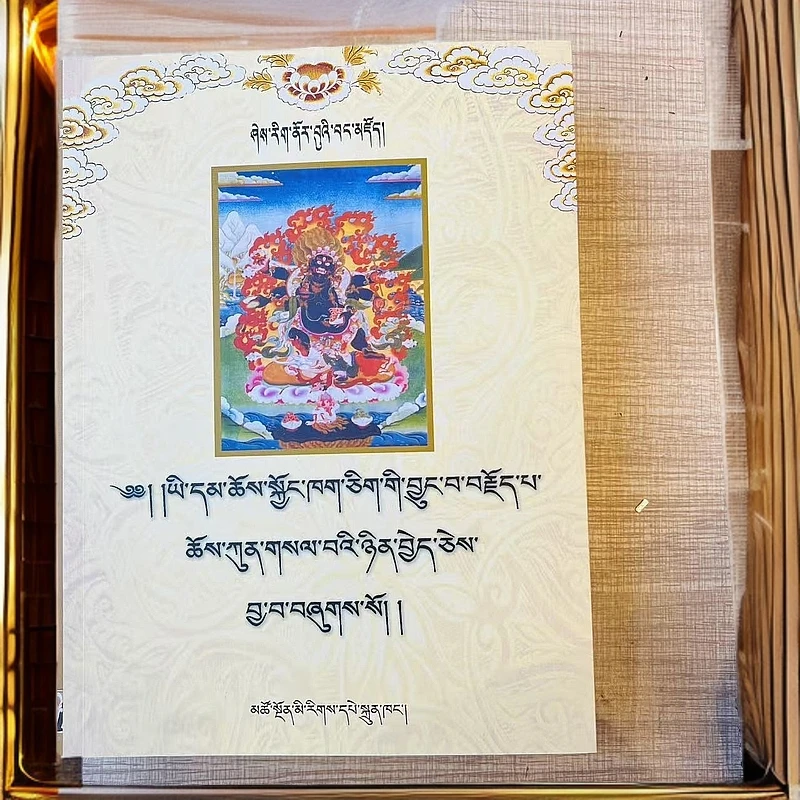 ཤེས་རིག་ནོར་བུའི་བང་མཛོད།
༄༅། །ཡི་དམ་ཆོས་སྐྱོང་ཁག་ཅིག་གི་བྱུང་བ་བརྗོད་པ་
ཆོས་ཀུན་གསལ་བའི་ཉིན་བྱེད་ཅེས་
བྱ་བ་བཞུགས་སོ། །
མཚོ་སྔོན་མི་རིགས་དཔེ་སྐྲུན་ཁང་།